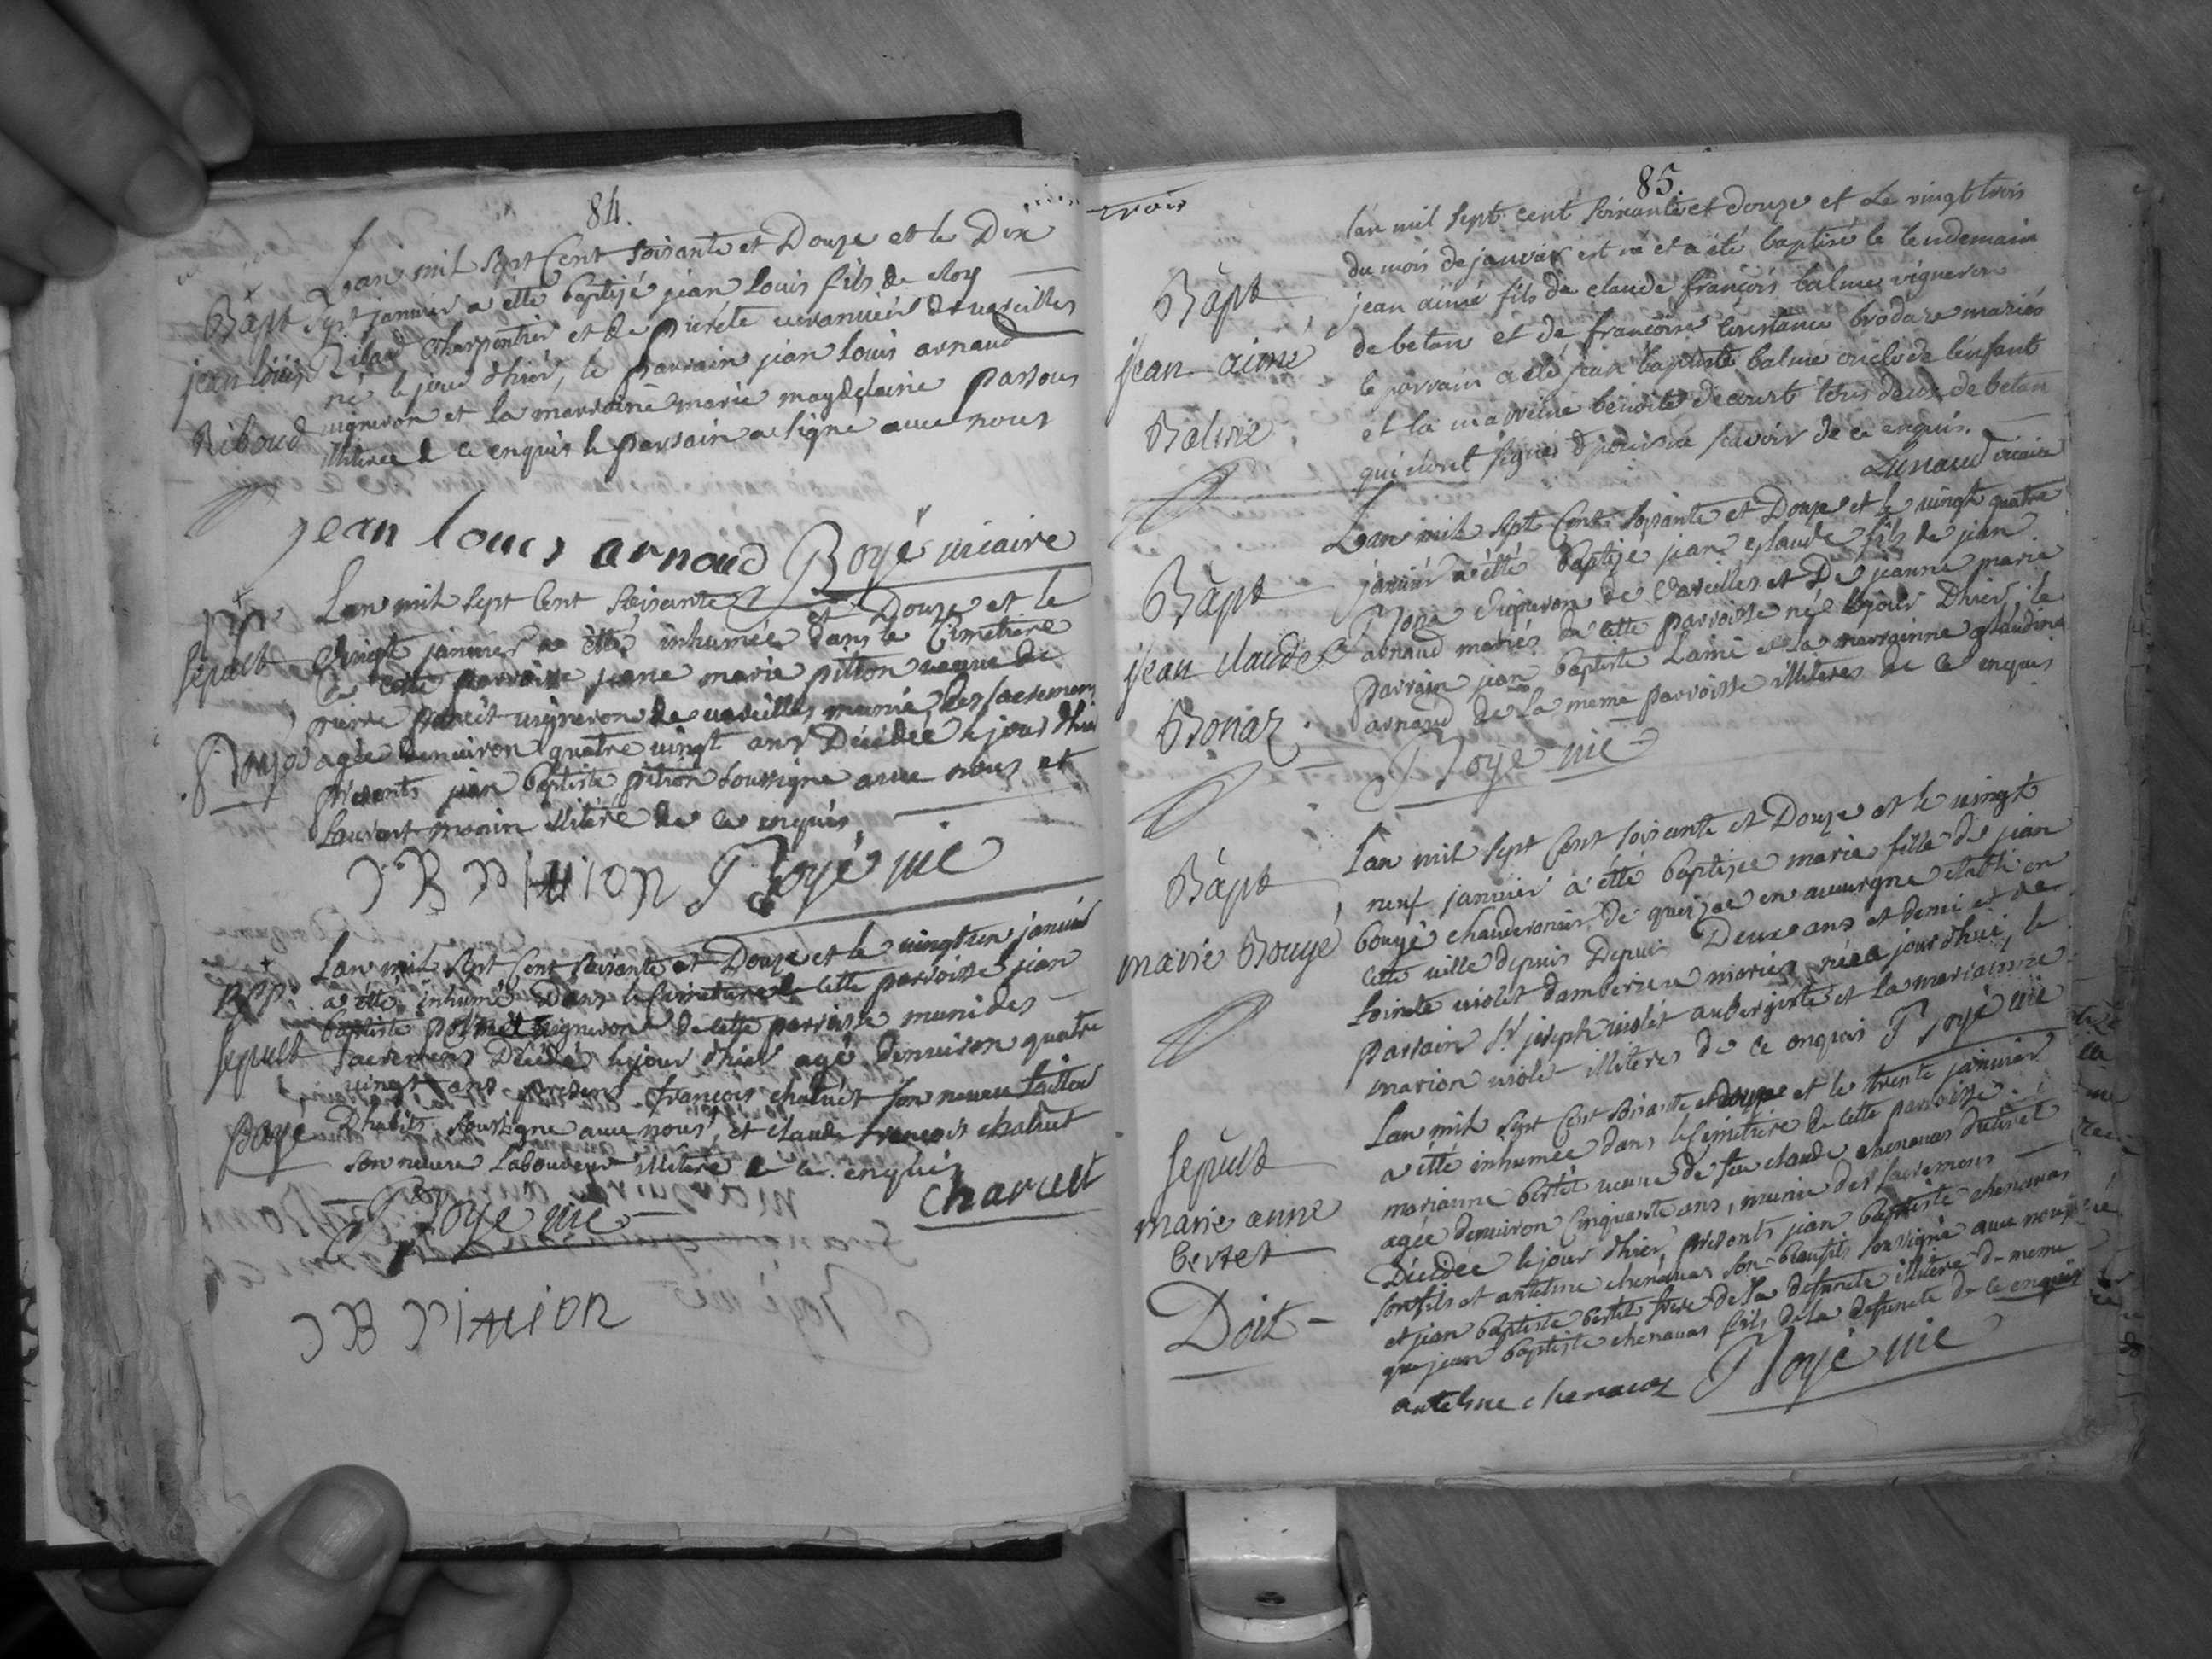 84.
Lan mil Sept Cent Soisante et Douze et le Dix
Bapt
Sept janvier a étté baptizé jean Louis fils de eloy
jean loüis
Ribaud Charpentier et de Pierrete veranniér de vareilles
né le jour d'hiér, le parrain jean louis arnaud
Riboud
vigneron et la marraine marie magdelaine passous
illiterée de ce enquis le parrain a signé avec nous
jean louis arnaud Boyé vicaire
Lan mil Sept Cent Soisante et Douze et le
Sepult
vingt janvier a étté inhumée dans le Cimetiére
de cette parroisse jeane marie pition veuve de
pierre vigneron de vareilles munie des sacremens
payé
agée denviron quatre vingt ans Décédée le jour d'hier
présents jean baptiste pition soussigné avec nous et
Laurant monin illitéré de ce enquis
J B Pition Boyé vic
Lan mil Sept Cent Soisante et Douze et le vingt un janvier
a étté inhumé dans le Cimetiere de cette parroisse jean
baptiste vigneron de cette parroisse muni des
Sepult
sacremens Décédé le jour d'hier agé denviron quatre
vingt ans présens françois chalvét son neveu tailleur
paye
D'habits soussigné avec nous, et claude françois chalvet
son neveu Laboureur illitéré de ce enquis
Boyé vic
charvet
J B Pition
trois
85.
lan mil sept cent soixante et douze et le vingt trois
du mois de janvier est né et a été baptisé le lendemain
Bapt
jean aimé fils de claude françois balme vigneron
jean aimé
de betan et de françoise constance brodaz mariés
le parrain a été jean baptiste balme oncle de l'enfant
Balme
et la marreine benoite decourt tous deux de betan
qui n'ont signés pour ne sçavoir de ce enquis.
vicaire
Lan mil Sept Cent Soisante et Douze et le vingt quatre
Bapt
janvier a étté baptizé jean claude fils de jean
jean claude
Bona vigneron de vareilles et De jeanne marie
arnaud mariés de cette parroisse né le jour D'hier, le
Bonaz
parrain jean baptiste Lainé et la marrainne glaudine
arnaud de la meme parroisse illiteres de ce enquis
Boyé vic
Lan mil Sept Cent Soisante et Douze et le vingt
Bapt
neuf janvier a étté baptizée marie fille de jean
marie Bouyé
bouyé chauderonier de queizac en auvergne etabli en
cette ville depuis Depuis Deux ans et demi et de
violet damberieu mariés née a jourd'hui, le
parrain Sr joseph violét aubergiste et la marrainne
marion violét illiteres de ce enquis Boyé vic
Lan mil Sept Cent soisante et douze et le trente janvier
Sepult
a étté inhumée dans le Cimetiére de cette parroisse
marie anne
marianne bertét veuve de feu claude chenavas
bertet
agée denviron Cinquante ans, munie des sacremens
Décédée le jour d'hier, présents jean baptiste chenavas
Doit
son fils et antelme chenavas son beaufils soussigné avec nous
et jean baptiste bertét frere de la defuncte illitére de meme
que jean baptiste chenavas fils de la defuncte de ce enquis
antelme chenavaz Boyé vic